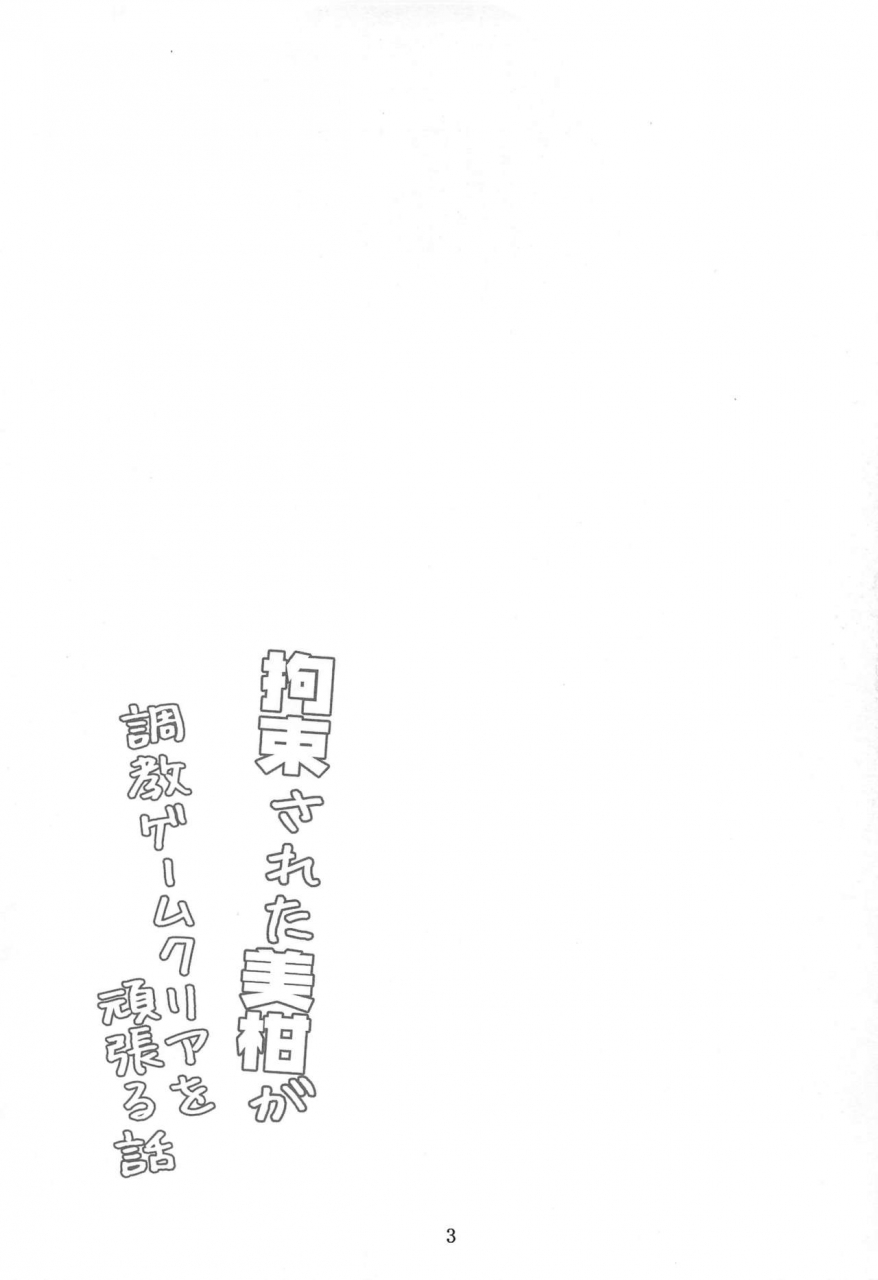 拘束された美柑が
調教ゲームクリアを
頑張る話
3